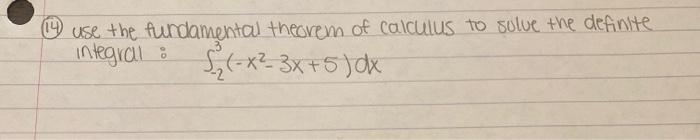 (14) use the fundamental theorem of calculus to solve the definite
integral : ∫₋₂³ (-x²-3x+5)dx